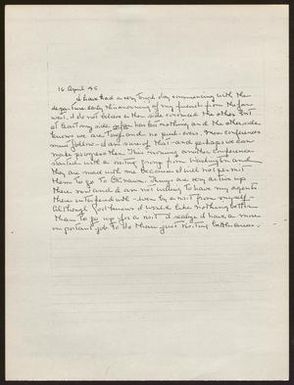 16 April 45
I have had a very tough day commencing with the
departure early this morning of my friends from the far
west. I do not believe either side convinced the other but
at least my side has lost nothing and the other side
knows we are tough and no push-overs. More conferences
must follow - I am sure of that - and perhaps we can
make progress then. This morning another conference
started with a visiting group from Washington and
they are mad with me because I will not permit
them to go to Okinawa. Things are very active up
there now and I am not willing to have my agents
there interfered with - even by a visit from myself -
although God knows I would like nothing better
than to go up for a visit I realize I have a more
important job to do than just visiting battle areas.